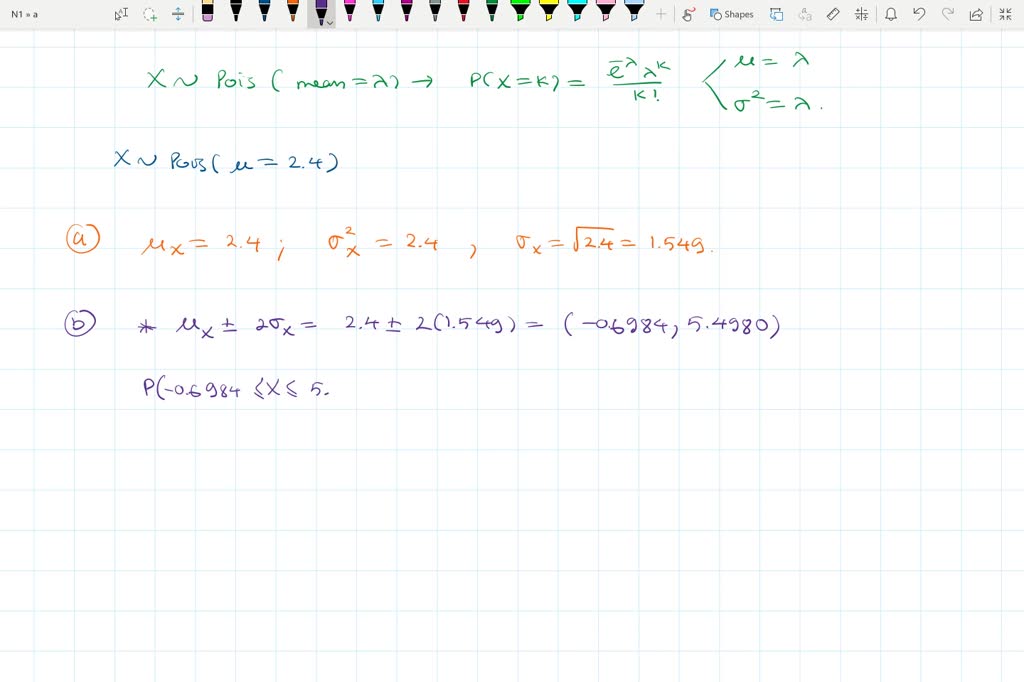 N1 » a
Shapes
X ~ Pois ( mean = λ) → P(X = K) = e^-λ λ^K / K! < μ = λ
σ² = λ.
X ~ Pois( μ = 2.4)
(a) μ_X = 2.4 ; σ²_X = 2.4 , σ_X = √2.4 = 1.549.
(b) * μ_X ± 2σ_X = 2.4 ± 2(1.549) = (-0.6984, 5.4980)
P(-0.6984 ≤ X ≤ 5.